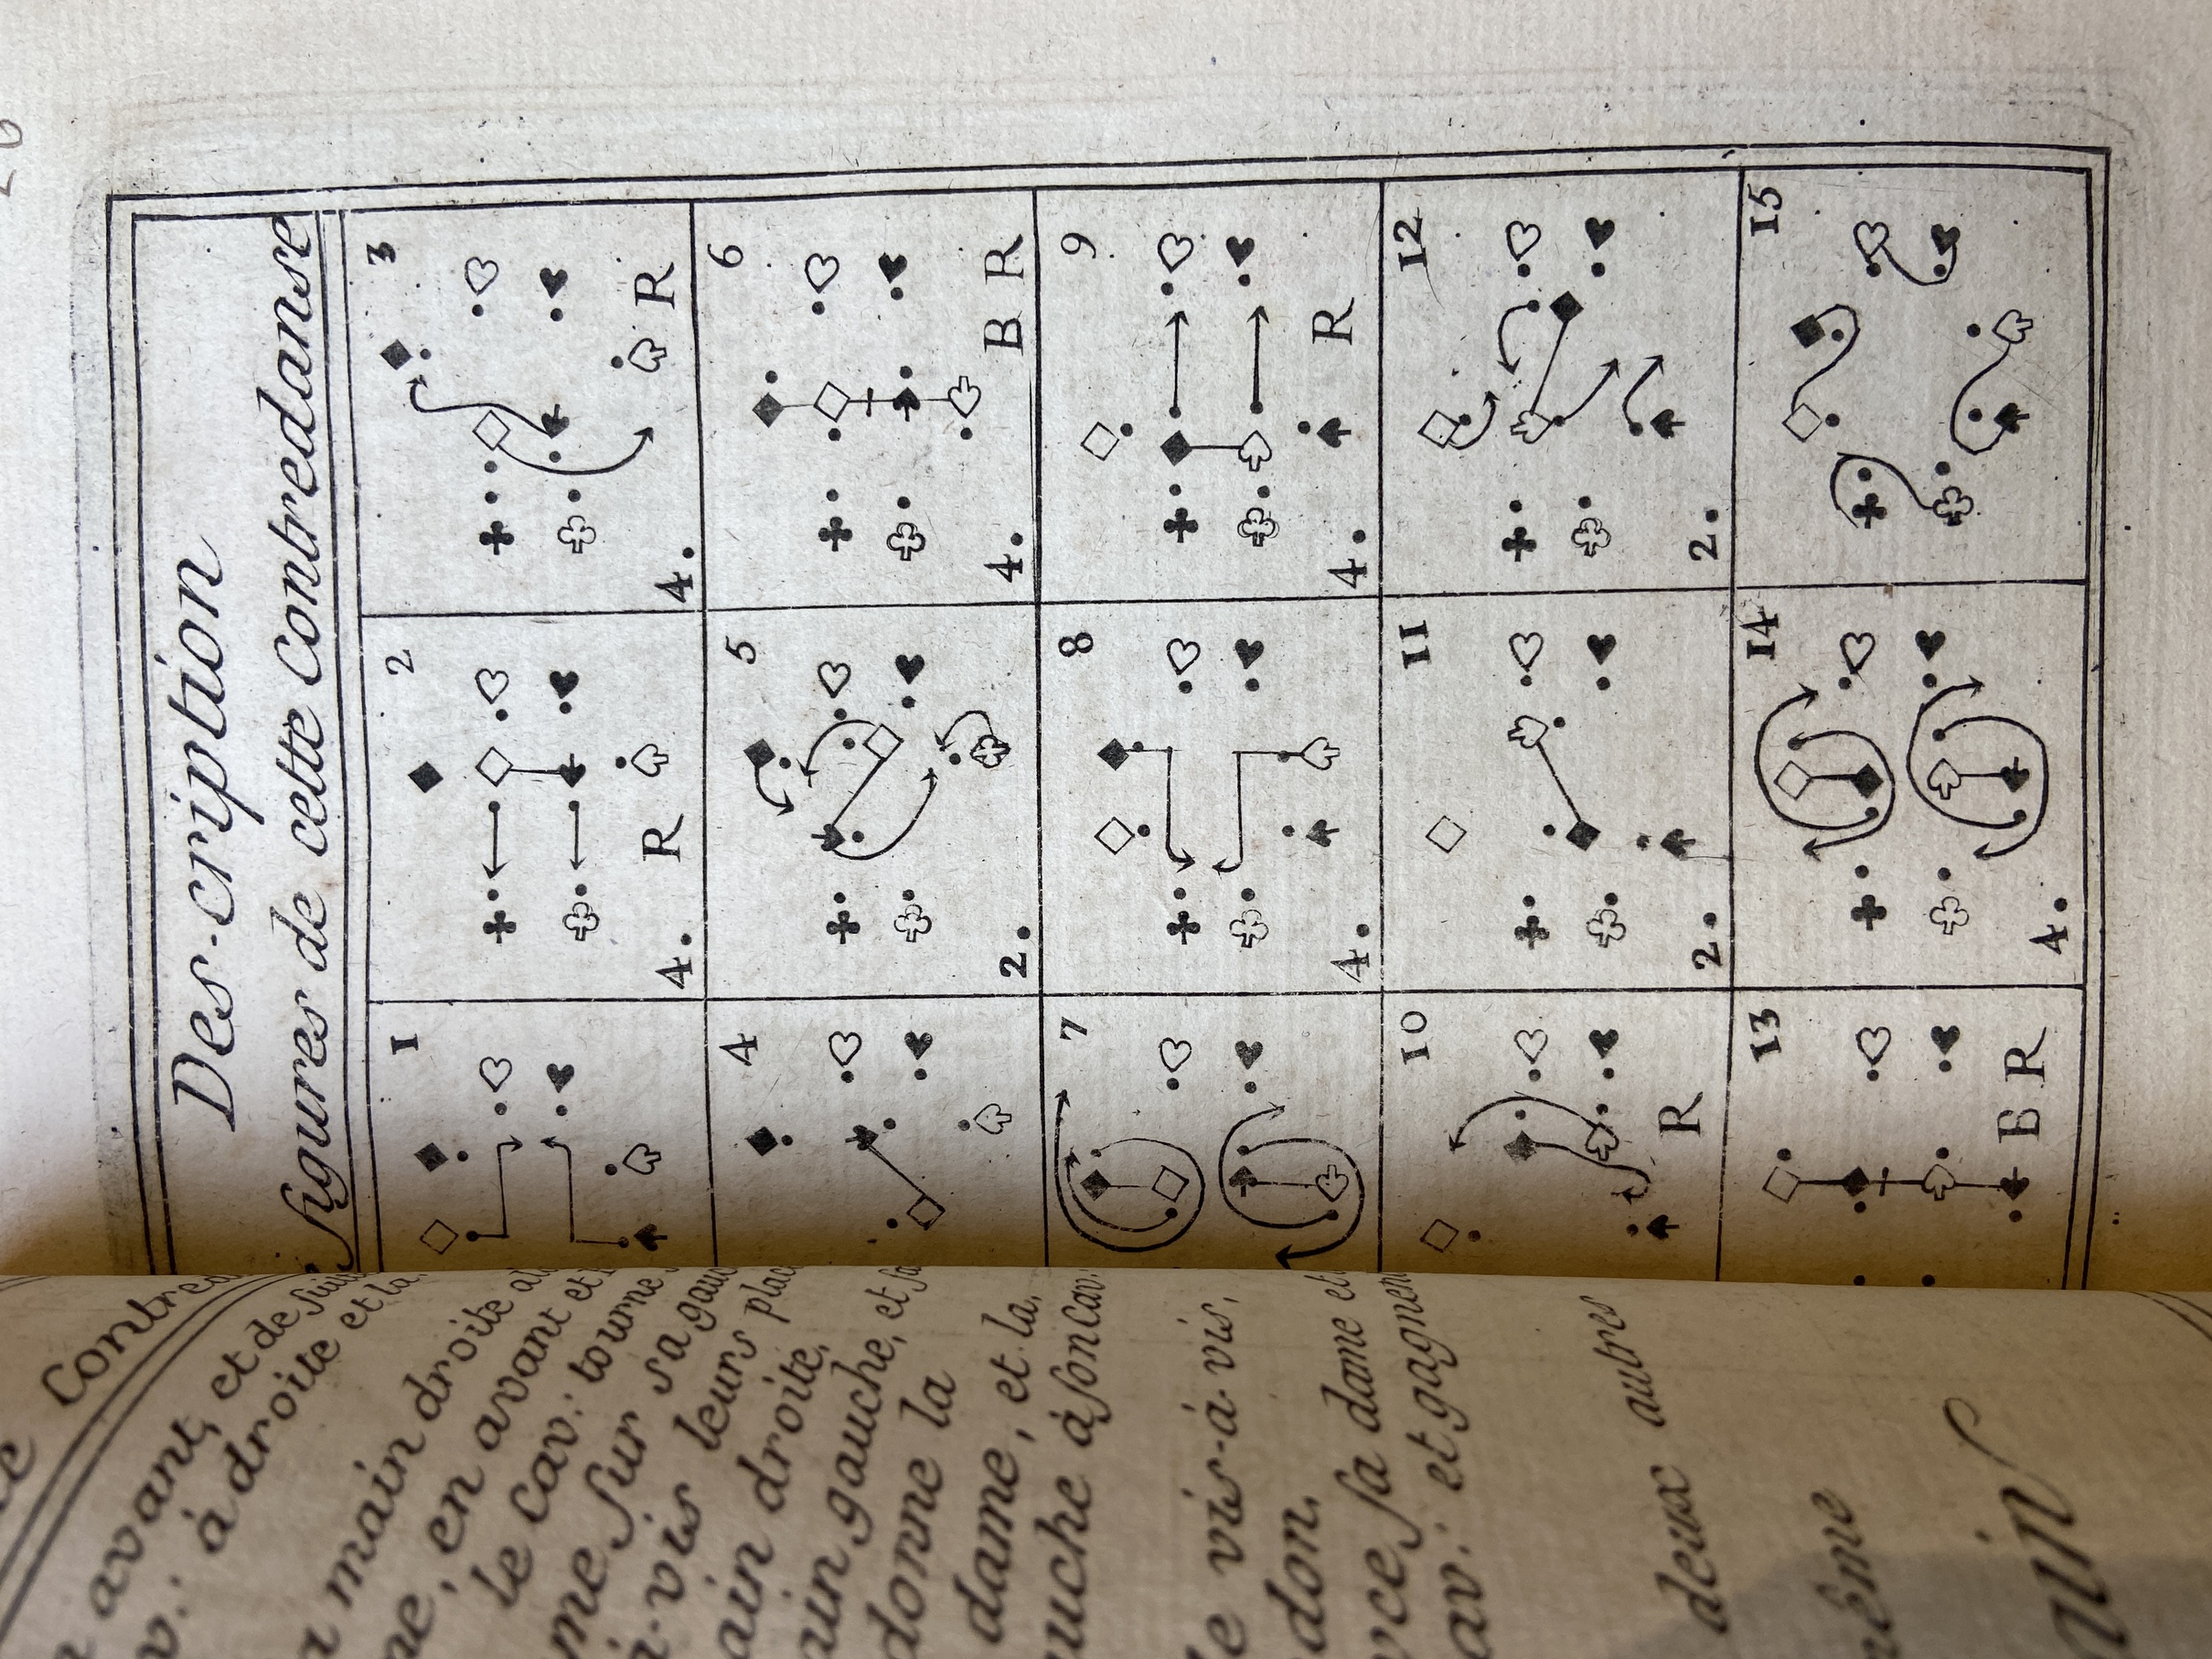 Des-cription
figures de cette Contredanse
1
2
4.
R
3
4.
R
4
5
2.
6
4.
B R
7
8
4.
9
4.
R
10
R
11
2.
12
2.
13
B R
14
4.
15
Contred
avant, et de sui
à droite et la
main droite
en avant et
le cav: tourne
me sur sa gauc
à-vis leurs plac
ain droite,
ain gauche, et sa
donne la
dame, et la,
uche à son cav:
le vis-à-vis,
don.
sa dame et
av: et gagnen
deux autres
même